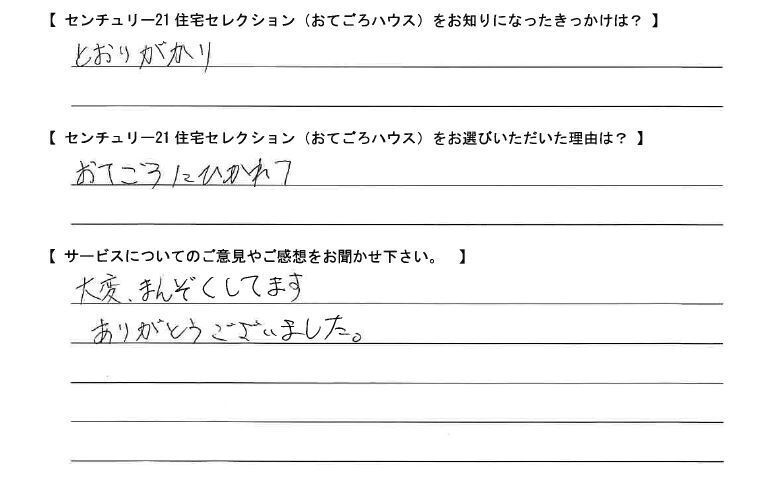 【 センチュリー21 住宅セレクション（おてごろハウス）をお知りになったきっかけは？ 】
とおりがかり
【 センチュリー21 住宅セレクション（おてごろハウス）をお選びいただいた理由は？ 】
おてごろにひかれて
【 サービスについてのご意見やご感想をお聞かせ下さい。 】
大変、まんぞくしてます
ありがとうございました。